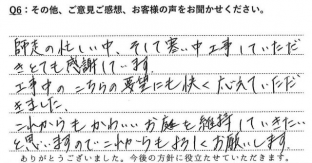 Q6：その他、ご意見ご感想、お客様の声をお聞かせください。
師走の忙しい中、そして寒い中工事していただ
きとても感謝しています
工事中のこちらの要望にも快く応えていただ
きました。
これからもかわいいお庭を維持していきたい
と思いますのでこれからもよろしくお願いします
ありがとうございました。今後の方針に役立たせていただきます。